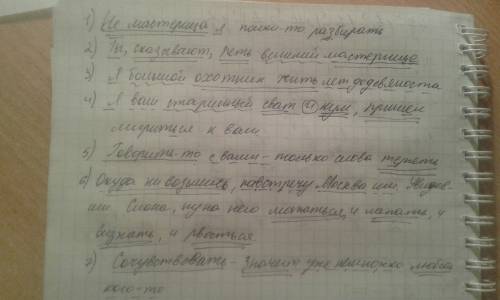 1) Не мастерица я полки-то разбирать
2) Ты, сказывают, петь великий мастерище
3) Я большой охотник жить лет до девяноста
4) Я ваш старинный сват и кум, пришел
мириться к вам
5) Говорить-то с вами - только слова терять
6) Откуда ни возьмись, навстречу Моська им. Увидев-
ши Слона, ну на него метаться, и лаять, и
визжать, и рваться
7) Сочувствовать - значит уже немножко любить
кого-то